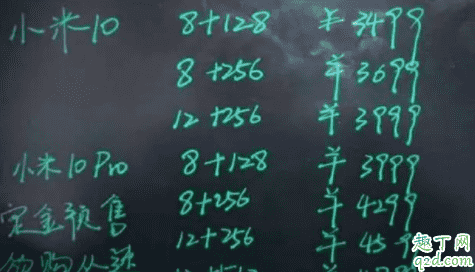 小米10 8+128 ¥3499
8+256 ¥3699
12+256 ¥3999
小米10 Pro 8+128 ¥3999
定金预售 8+256 ¥4299
12+256 ¥459
趣丁网
q2d.com